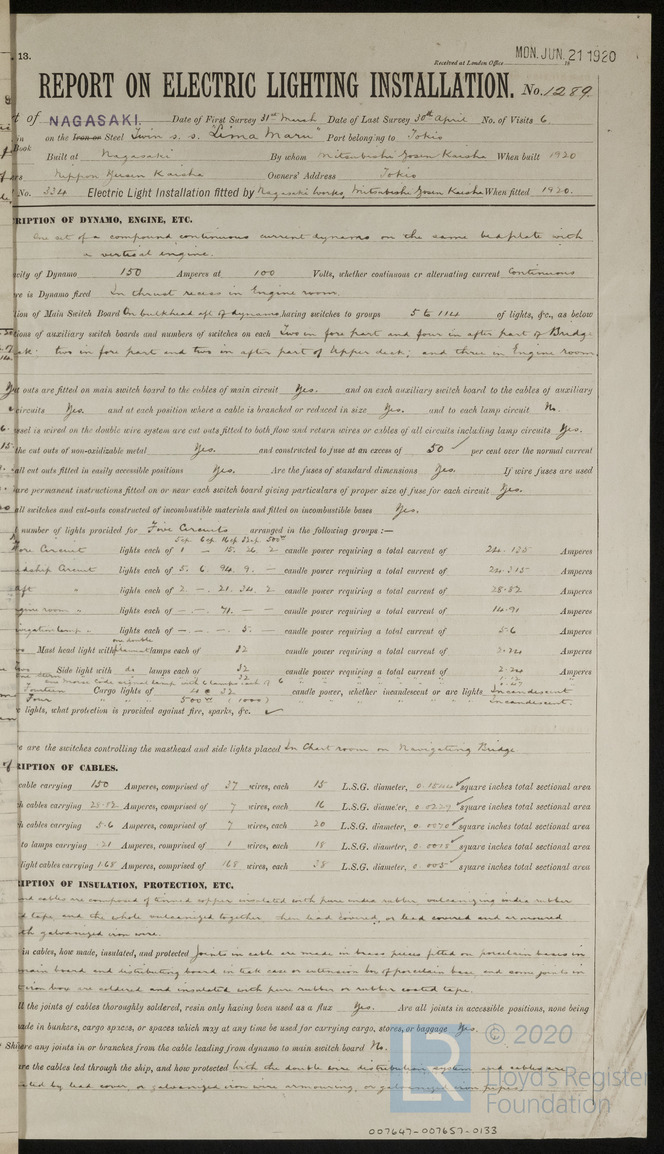 13.
Received at London Office MON. JUN. 21 1920
REPORT ON ELECTRIC LIGHTING INSTALLATION. No. 1289.
t of NAGASAKI. Date of First Survey 31st March Date of Last Survey 30th April No. of Visits 6
in Book on the Iron or Steel Twin s.s. "Lima Maru" Port belonging to Tokio
Built at Nagasaki By whom Mitsubishi Zosen Kaisha When built 1920
rs Nippon Yusen Kaisha Owners' Address Tokio
No. 334 Electric Light Installation fitted by Nagasaki Works, Mitsubishi Zosen Kaisha When fitted 1920.
RIPTION OF DYNAMO, ENGINE, ETC.
One set of a compound continuous current dynamo on the same bedplate with
a vertical engine.
city of Dynamo 150 Amperes at 100 Volts, whether continuous or alternating current Continuous
re is Dynamo fixed In thrust recess in Engine room.
tion of Main Switch Board On bulkhead aft of dynamo, having switches to groups 5 to 114 of lights, &c., as below
tions of auxiliary switch boards and numbers of switches on each Two in fore part and four in after part of Bridge
two in fore part and two in after part of Upper deck; and three in Engine room.
ut outs are fitted on main switch board to the cables of main circuit Yes. and on each auxiliary switch board to the cables of auxiliary
circuits Yes. and at each position where a cable is branched or reduced in size Yes. and to each lamp circuit No.
ssel is wired on the double wire system are cut outs fitted to both flow and return wires or cables of all circuits including lamp circuits Yes.
the cut outs of non-oxidizable metal Yes. and constructed to fuse at an excess of 50 per cent over the normal current
all cut outs fitted in easily accessible positions Yes. Are the fuses of standard dimensions Yes. If wire fuses are used
are permanent instructions fitted on or near each switch board giving particulars of proper size of fuse for each circuit Yes.
all switches and cut-outs constructed of incombustible materials and fitted on incombustible bases Yes.
number of lights provided for Five Circuits arranged in the following groups :—
5cp 6cp 16cp 32cp 500w
Fore Circuit lights each of 1 – 15. 26. 2 candle power requiring a total current of 24.135 Amperes
dship Circuit lights each of 5. 6. 94. 9. – candle power requiring a total current of 24.315 Amperes
Aft " lights each of 2 – 21. 34. 2 candle power requiring a total current of 28.82 Amperes
gine room " lights each of – . – . 71. – – candle power requiring a total current of 14.91 Amperes
lights each of – . – . – . 5. – candle power requiring a total current of 5.6 Amperes
Mast head light with one double lamps each of 32 candle power requiring a total current of 2.24 Amperes
Two Side light with do lamps each of 32 candle power requiring a total current of 2.24 Amperes
Morse Code signal lamp with 6 lamps each of 6
Fourteen Cargo lights of 4 @ 32 candle power, whether incandescent or arc lights Incandescent
Four 500w (1000) Incandescent.
c lights, what protection is provided against fire, sparks, &c.
e are the switches controlling the masthead and side lights placed In Chart room on Navigating Bridge
RIPTION OF CABLES.
cable carrying 150 Amperes, comprised of 37 wires, each 15 L.S.G. diameter, square inches total sectional area
h cables carrying 28.82 Amperes, comprised of 7 wires, each 16 L.S.G. diameter, square inches total sectional area
h cables carrying 5.6 Amperes, comprised of 7 wires, each 20 L.S.G. diameter, 0.0070 square inches total sectional area
to lamps carrying .21 Amperes, comprised of 1 wires, each 18 L.S.G. diameter, 0.0018 square inches total sectional area
light cables carrying 1.68 Amperes, comprised of 168 wires, each 38 L.S.G. diameter, 0.005 square inches total sectional area
RIPTION OF INSULATION, PROTECTION, ETC.
cables are composed of tinned copper insulated with pure india rubber vulcanizing india rubber
d tape, and the whole vulcanized together, then lead covered, or lead covered and armoured
th galvanized iron wire.
in cables, how made, insulated, and protected Joints in cable are made in brass pieces fitted on porcelain bases in
main board and distributing board in teak case or extension box of porcelain base and some joints in
box are soldered and insulated with pure rubber or rubber coated tape.
ll the joints of cables thoroughly soldered, resin only having been used as a flux Yes. Are all joints in accessible positions, none being
ade in bunkers, cargo spaces, or spaces which may at any time be used for carrying cargo, stores, or baggage Yes.
here any joints in or branches from the cable leading from dynamo to main switch board No.
re the cables led through the ship, and how protected With the double wire distribution system and cables are
ted by lead cover, or galvanized iron wire armouring, or galvanized iron pipes.
© 2020
Lloyd's Register
Foundation
007647-007657-0133